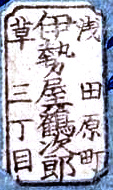 浅田原町
伊勢屋鶴次郎
草三丁目